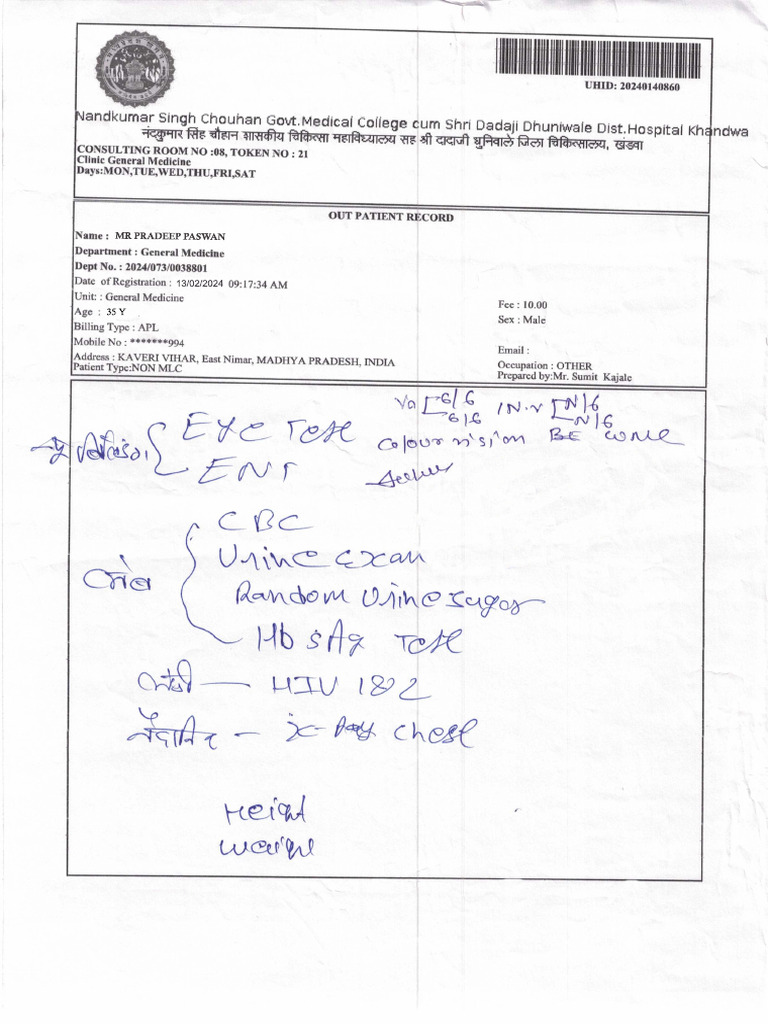 UHID: 20240140860
Nandkumar Singh Chouhan Govt.Medical College cum Shri Dadaji Dhuniwale Dist.Hospital Khandwa
नंदकुमार सिंह चौहान शासकीय चिकित्सा महाविध्यालय सह श्री दादाजी धुनिवाले जिला चिकित्सालय, खंडवा
CONSULTING ROOM NO :08, TOKEN NO : 21
Clinic General Medicine
Days:MON,TUE,WED,THU,FRI,SAT
OUT PATIENT RECORD
Name : MR PRADEEP PASWAN
Department : General Medicine
Dept No. : 2024/073/0038801
Date of Registration : 13/02/2024 09:17:34 AM
Unit: : General Medicine
Fee : 10.00
Age : 35 Y
Sex : Male
Billing Type : APL
Mobile No : *******994
Email :
Address : KAVERI VIHAR, East Nimar, MADHYA PRADESH, INDIA
Occupation : OTHER
Patient Type:NON MLC
Prepared by:Mr. Sumit Kajale
Va 6/6 N/6
6/6 N/6
EYE Test Colour vision BE
ENT
CBC
Urine Exam
Random Urine sugar
HbsAg Test
HIV 1&2
X-Ray Chest
Height
Weight